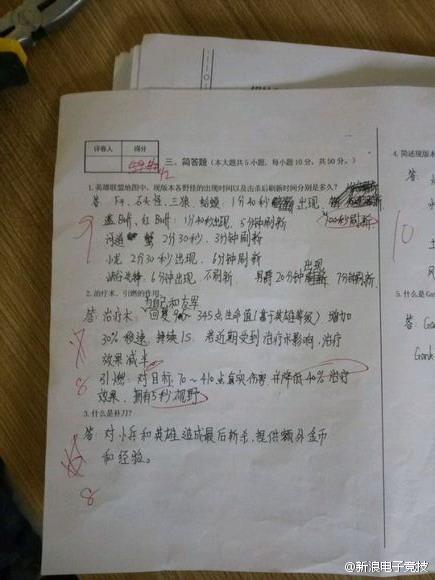 评卷人 得分
三、简答题（本大题共5小题，每小题10分，共50分。）
1.英雄联盟地图中，现版本各野怪的出现时间以及击杀后刷新时间分别是多久？
答：F4、石头怪、三狼、蛤蟆：1分40秒出现，100秒刷新
9
蓝Buff、红Buff：1分40秒出现，5分钟刷新
河道蟹 2分30秒，3分钟刷新
小龙 2分30秒出现，6分钟刷新
峡谷先锋：6分钟出现 不刷新 男爵20分钟出现 7分钟刷新
2.治疗术、引燃的作用
答：治疗术：为自己和友军回复90～345点生命值（基于英雄等级）增加
30%移速，持续1S。若近期受到治疗术影响，治疗
效果减半
8
引燃：对目标70～410点真实伤害并降低40%治疗
效果，拥有5秒视野
3.什么是补刀？
答：对小兵和英雄造成最后斩杀，提供额外金币
和经验。
8
4.简述现版本
答：
10
5.什么是Gan
答：Gan
Gank
@新浪电子竞技